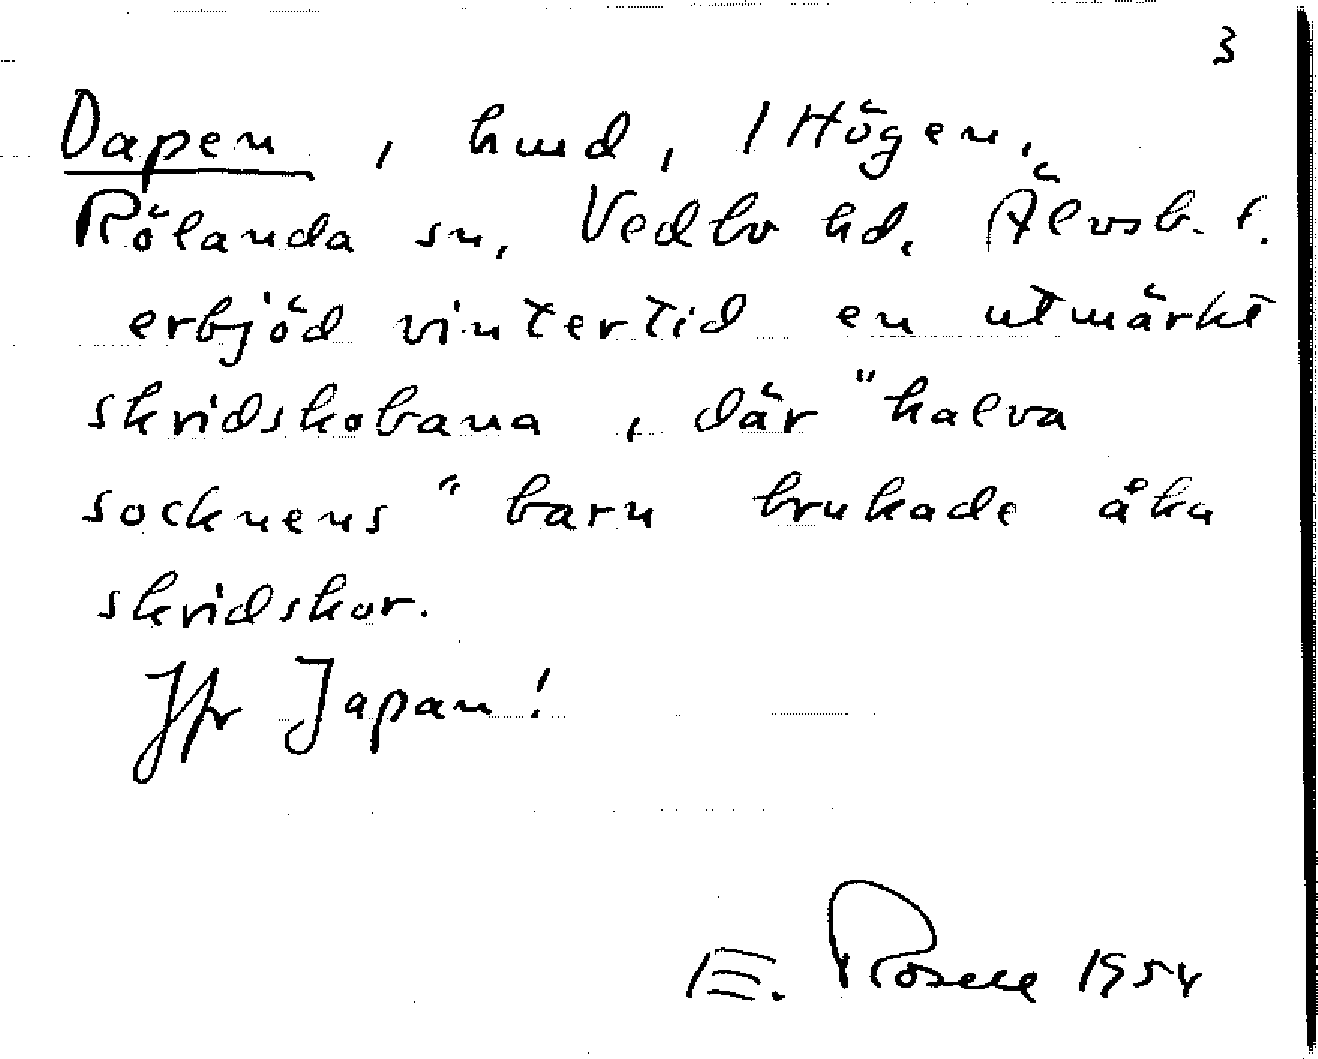 3
Dapen, hmd, 1 Högen,
Rölanda sn, Vedbo hd. Älvsb. l.
erbjöd vintertid en utmärkt
skridskobana, där "halva
socknens" barn brukade åka
skridskor.
Jfr Japan!
E. Rosell 1954